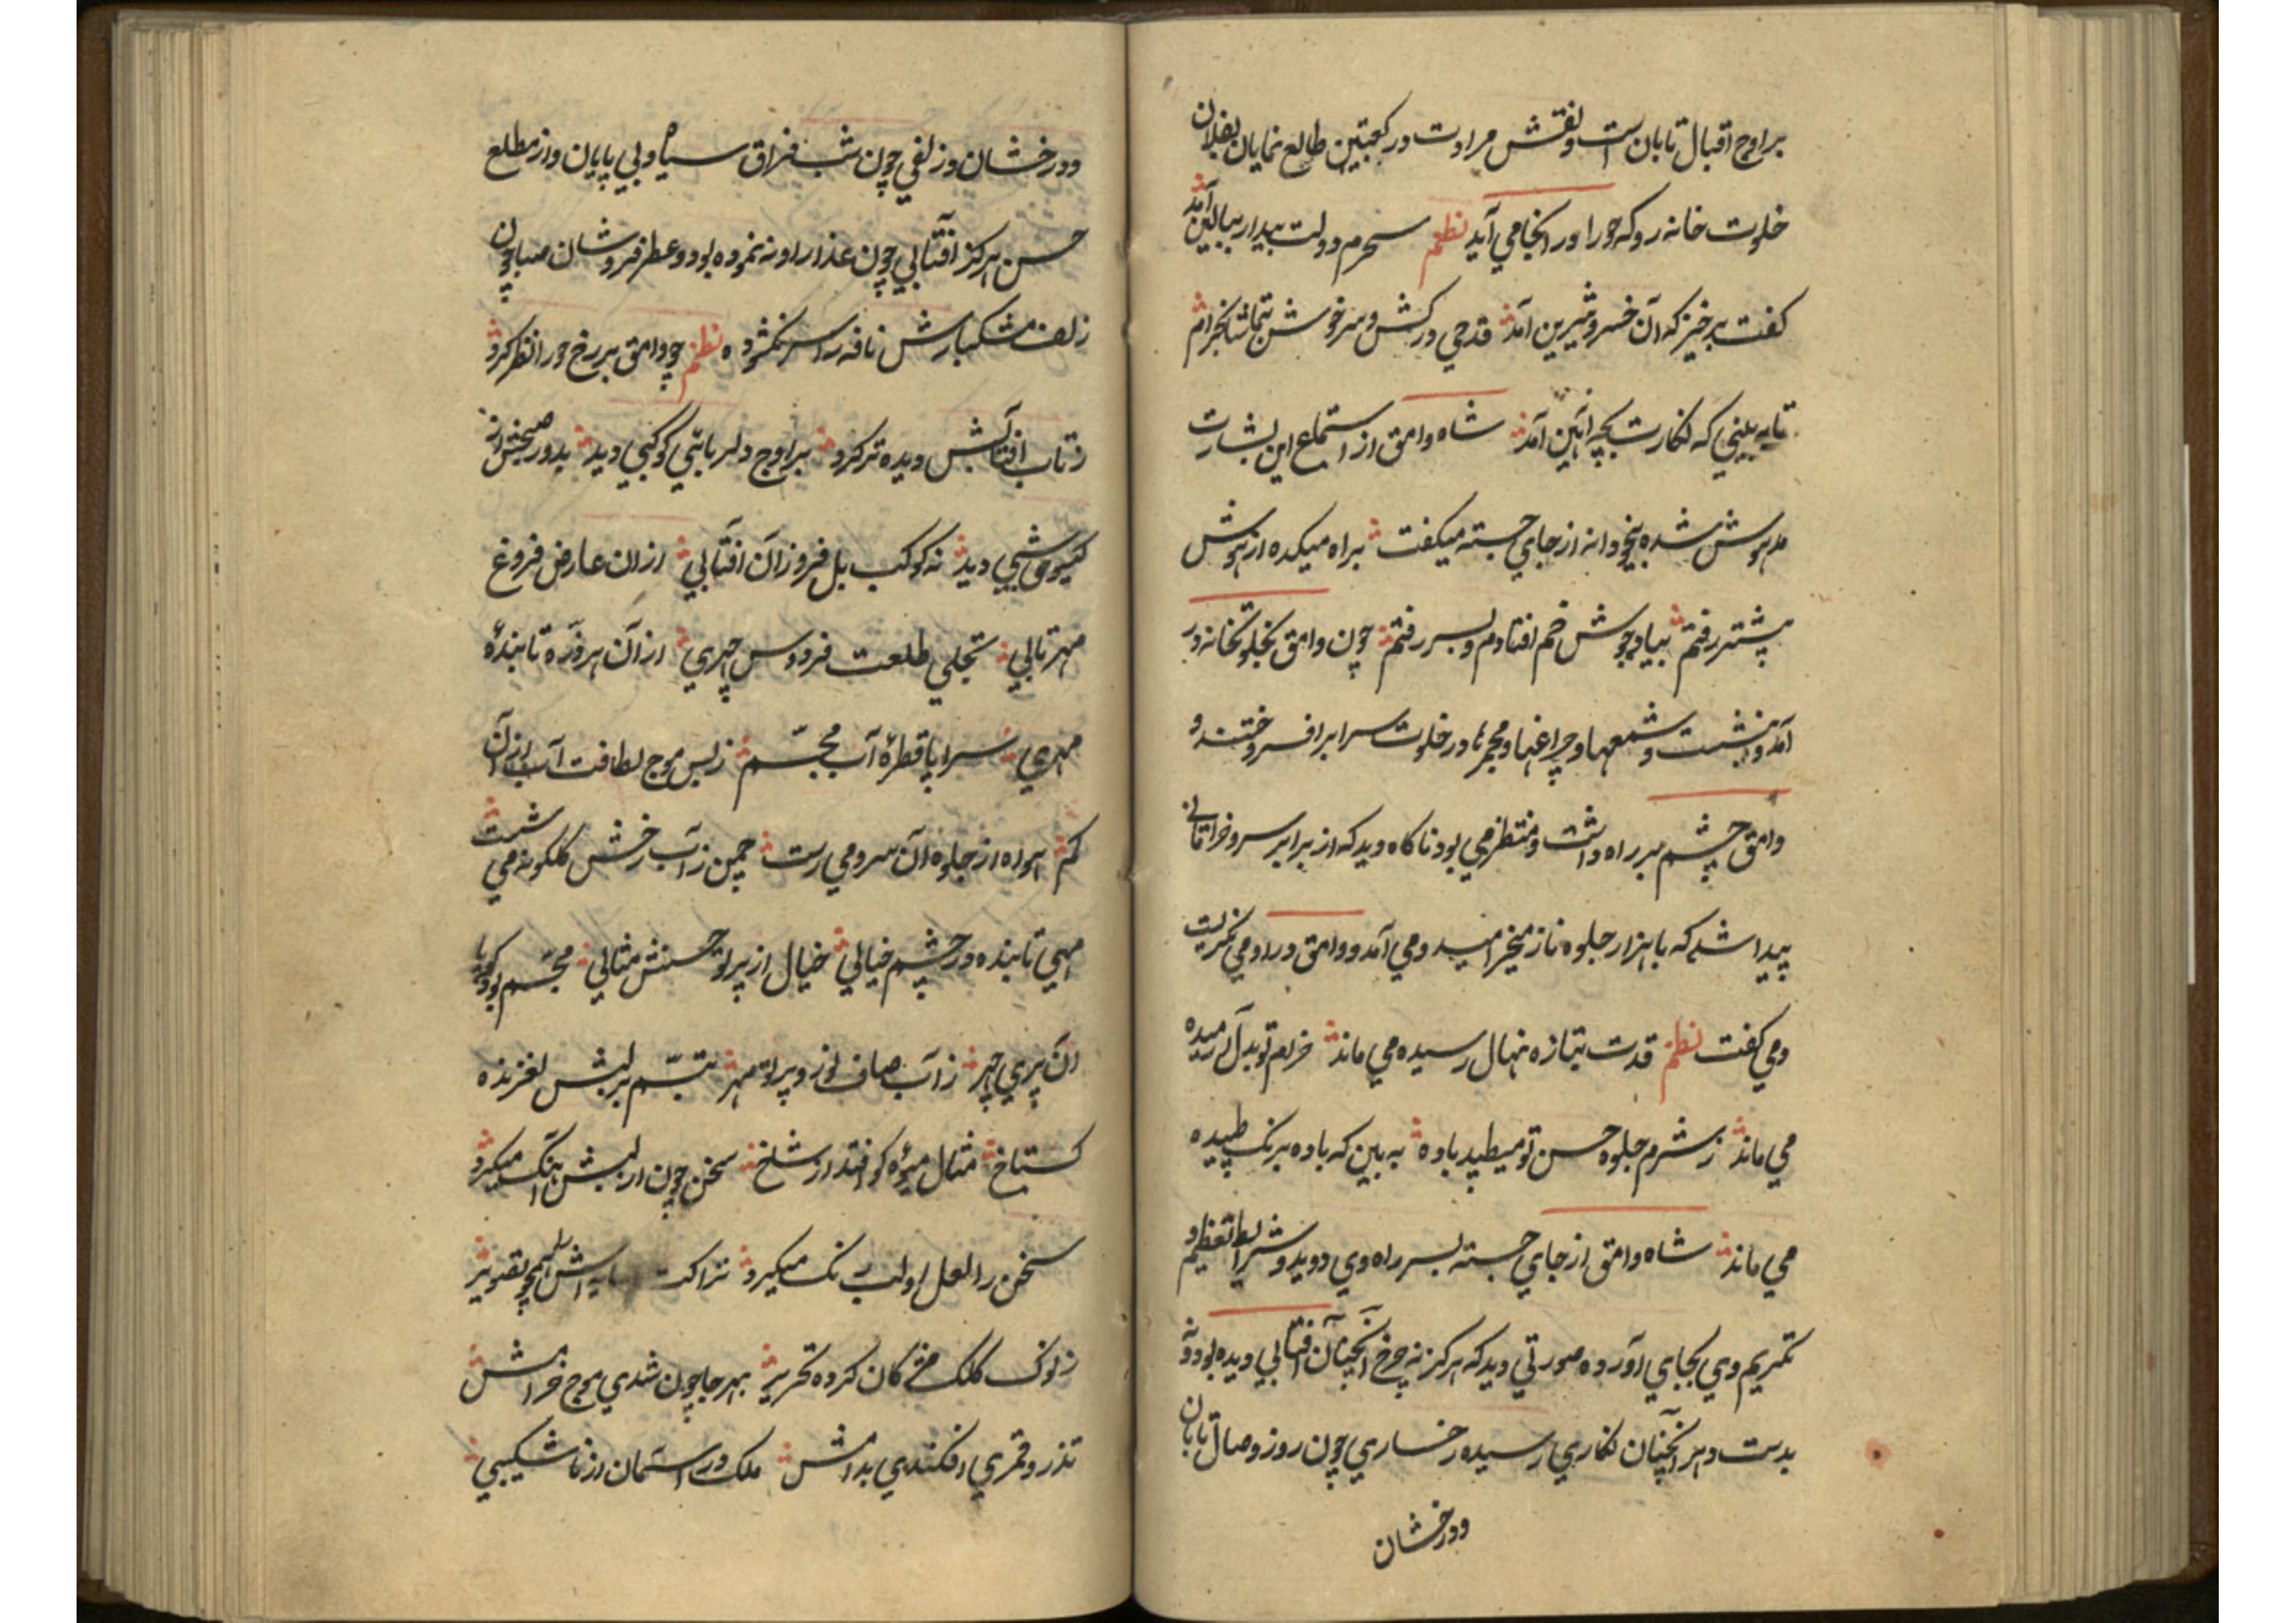 بر اوج اقبال تابان است و نقش مرادت در کعبتین طالع نمایان بفلان
خلوت خانه رو که حورا در انجا می آید نظم سحرم دولت بیدار ببالین آمد
کفت برخیز که آن خسرو شیرین آمد قدحی درکش و سرخوش بتماشا بخرام
تا به بینی که نکارت بچه آئین آمد شاه وامق از استماع این بشارت
مدهوش شده بیخودانه از جای جسته میکفت براه میکده از هوش
پیشتر رفتم بیاد جوش خم افتادم و بسر رفتم چون وامق بخلوتخانه در
آمد و بنشست و شمعها و چراغها و مجمرها در خلوت سرا برافروختند و
وامق چشم بر راه داشت و منتظر می بود ناکاه دید که از برابر سرو خرامانی
پیدا شد که با هزار جلوه ناز میخرامید و می آمد و وامق در او می نکریست
و می کفت نظم قدت بتازه نهال رسیده می ماند خرام تو بدل آرمیده
می ماند ز شرم جلوه حسن تو میطپد باده به بین که باده برنک طپیده
می ماند شاه وامق از جای جسته بسر راه وی دوید و شرایط تعظیم و
تکریم وی بجای آورده صورتی دید که هرکز نه چرخ آنچنان آفتابی دیده بود و نه
بدست دهر آنچنان نکاری رسیده رخساری چون روز وصال تابان
ودرخشان
ودرخشان و زلفی چون شب فراق سیاه و بی پایان و از مطلع
حسن هرکز آفتابی چون عذار او نه نموده بود و عطرفروشان صبا چون
زلف مشکبارش نافه را سر نکشوده نظم چو وامق بر رخ حورا نظر کرد
ز تاب افتابش دیده تر کرد بر اوج دلربائی کوکبی دید بدور صبحش از
کیسو شبی دید نه کوکب بل فروزان افتابی ازان عارض فروغ
مهر تابی تجلی طلعت فردوس چهری ازان هر ذره تابنده
مهری سراپا قطره آب مجسم ز بس موج لطافت آب ازان
کم هوا از جلوه آن سرو می رست چمن ز آب رخش کلکونه می شست
مهی تابنده در چشم خیالی خیال از پرتو حسنش مثالی مجسم بود کویا
ان پری چهر ز آب صاف نور و پرتو مهر تبسم بر لبش لغزنده
کستاخ مثال میوه کو افتد از شاخ سخن چون از لبش آهنک میکرد
سخن را لعل او لب رنک میکیرد نزاکت سایه اش همچو تصویر
ز نوک کلک مژکان کرده تحریر بهر جا چون شدی موج خرامش
تذرو و قمری افکندی بدامش ملک در آسمان از ناشکیبی